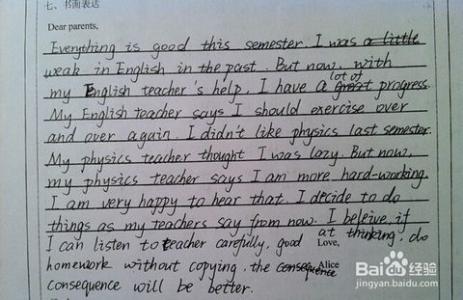 七、书面表达
Dear parents,
Everything is good this semester. I was a little
weak in English in the past. But now, with
my English teacher's help, I have a lot of great progress.
My English teacher says I should exercise over
and over again. I didn't like physics last semester.
My physics teacher thought I was lazy. But now,
my physics teacher says I am more hard-working.
I am very happy to hear that. I decide to do
things as my teachers say from now. I beleive, if
I can listen to teacher carefully, good at thinking, do
Love,
homework without copying, the consequence Alice
consequence will be better.
Bai du 经验